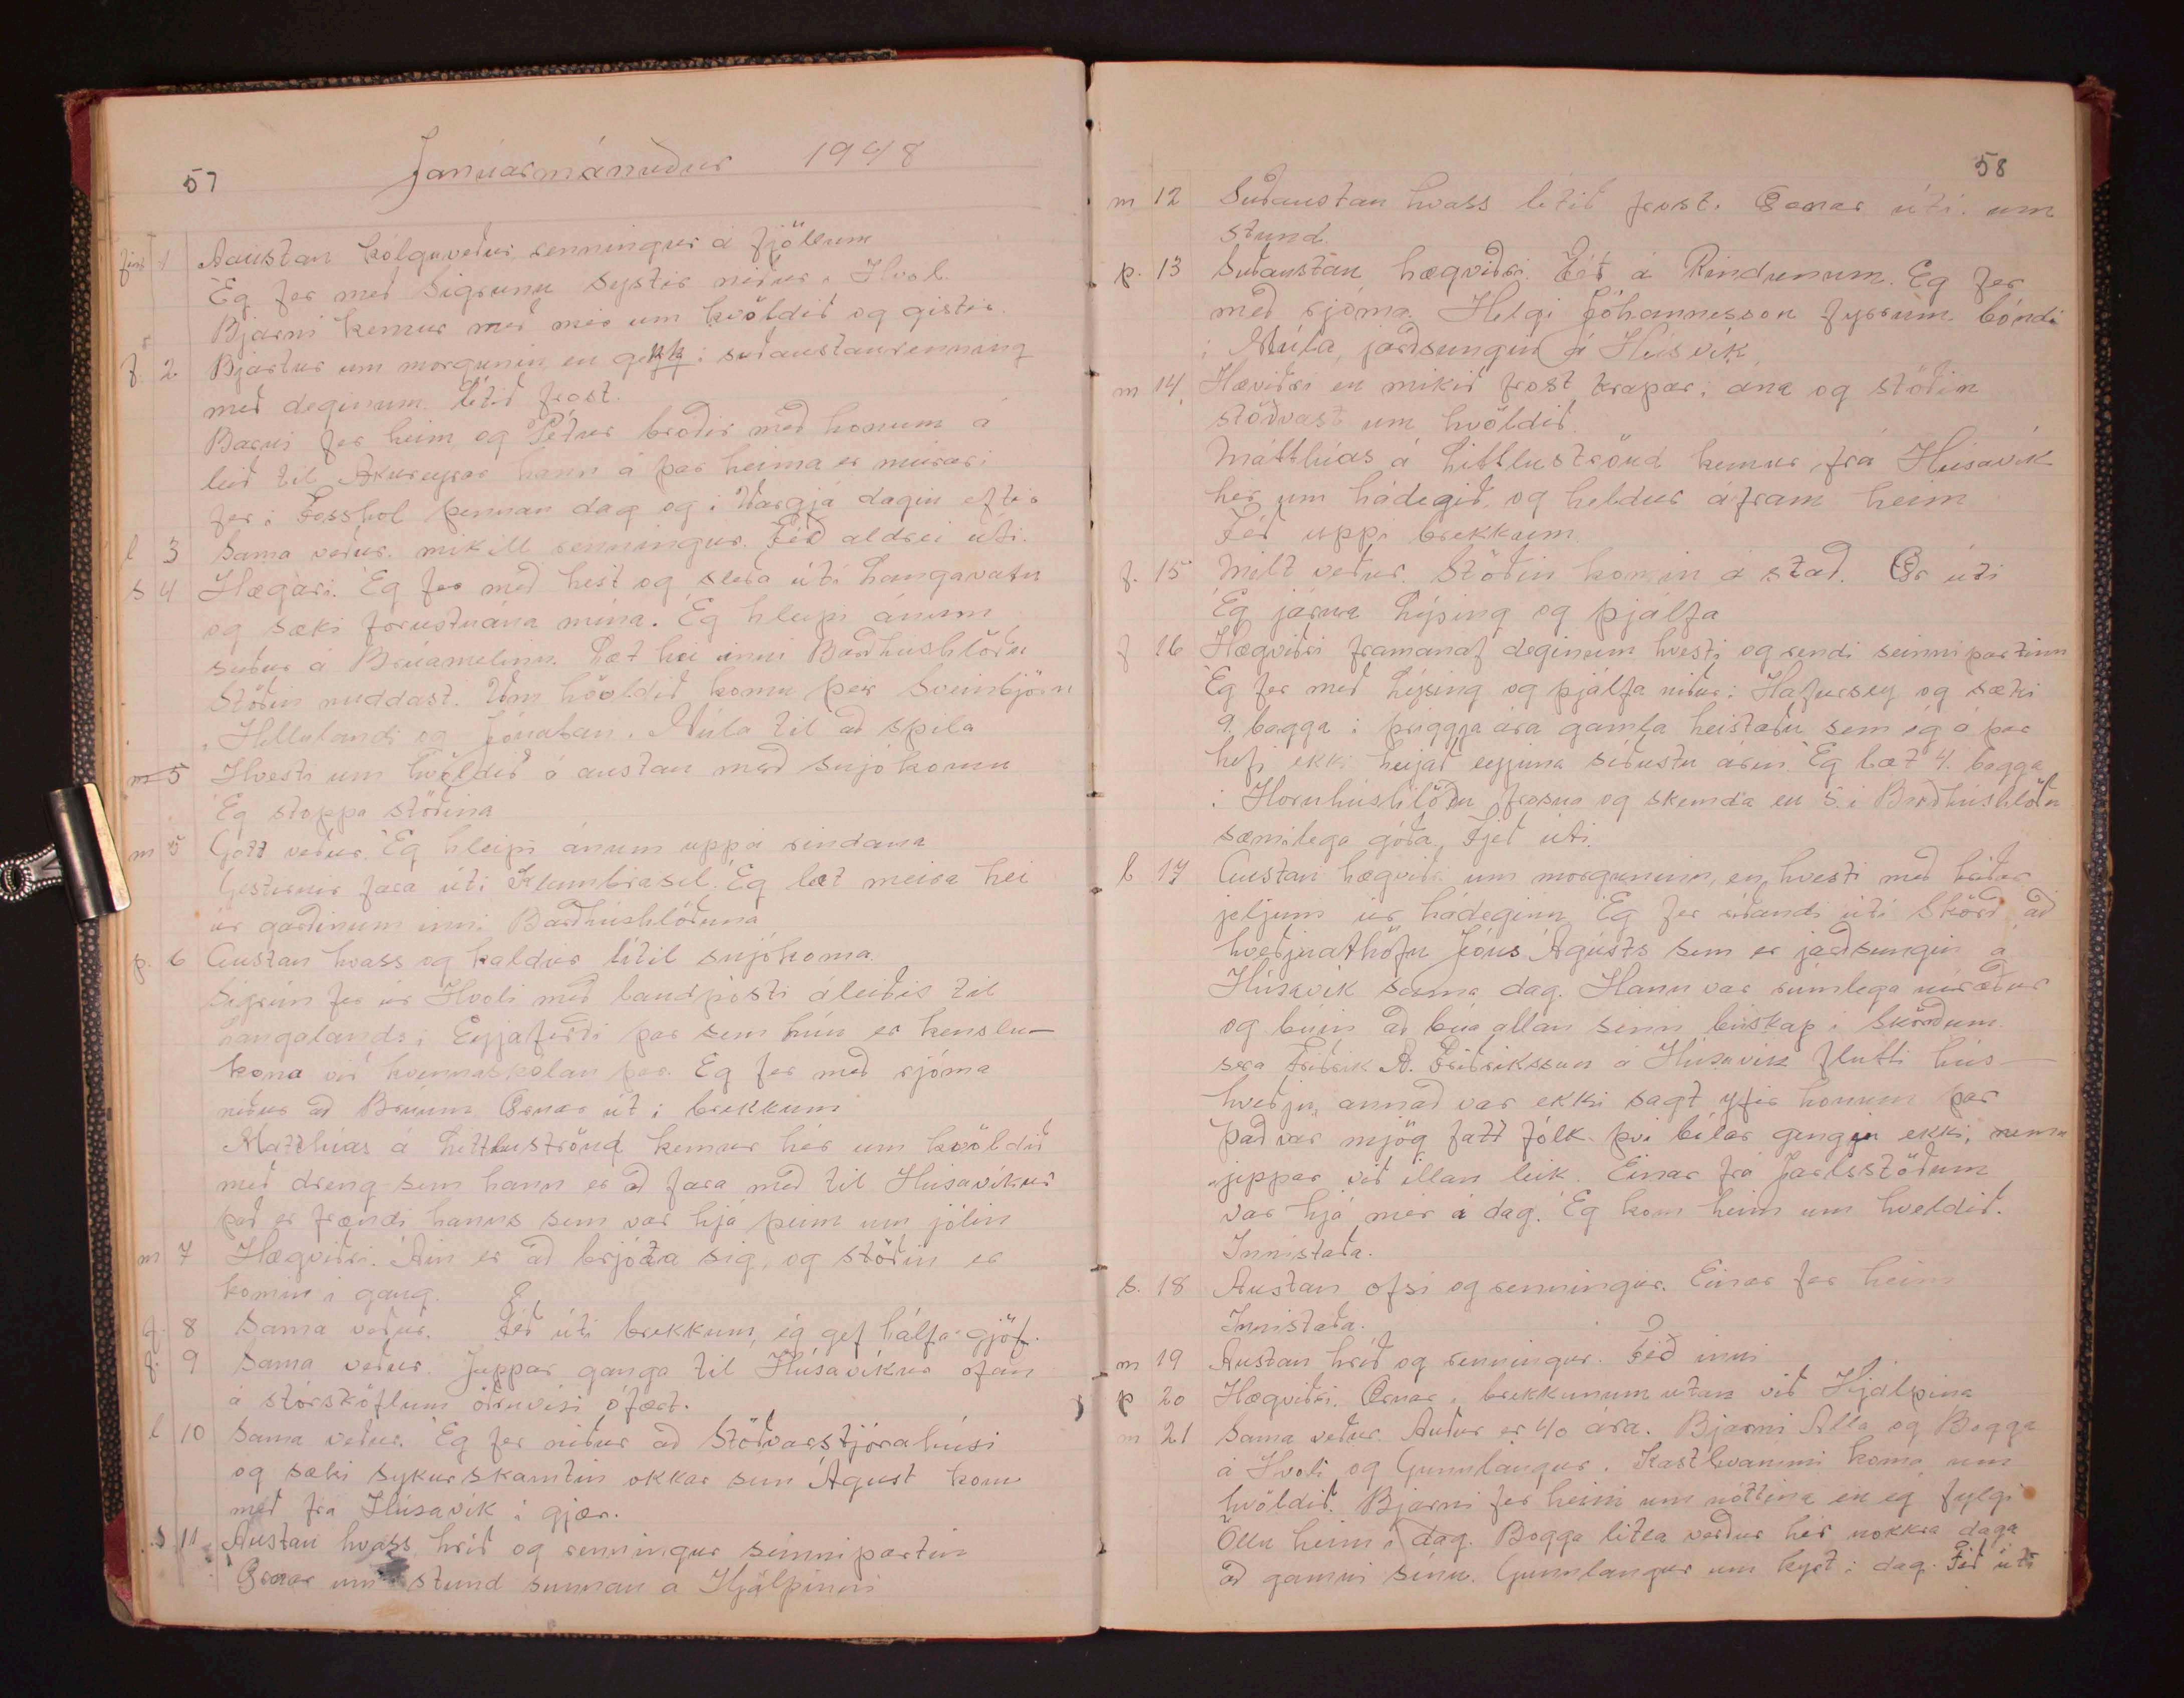 57
Janúarmánuður 1948
fimt 1 Aaustan kólguveður renningur á fjöllum
Ég fer með Sigrunu systir niður í Hvol.
Bjarni kemur með mér um kvöldið og gistir.
f. 2 Bjartur um morgunin en gekk í suðaustanrenning
með deginum. lítið frost.
Barni fer heim og Pétur broðir með honum á
leið til Akureyrar hann á þar heima er múrari
fer í Fosshol þennan dag og í Vargjá dagin eftir
l 3 Sama veður. mikill renningur. Féð aldrei úti.
s 4 Hægari. Ég fer með hest og sleða útí Langavatn
og sæki forustuána mína. Ég hleipi ánum
suður á Brúamelinn. Læt hei inní Barðhúshlöðu
Stöðin nuddast. Um kvöldið komu þeir Sveinbjörn
í Hellulandi og Jónatan í Múla til að spila
m 5 Hvesti um kvöldið á austan með snjókomu
Ég stoppa stöðina
m 5 Gott veður. Ég hleipi ánum uppá rindana
Gestirnir fara útí Klambrasel. Ég læt meira hei
úr garðinum inní Barðhúshlöðuna
þ. 6 Austan hvass og kaldur lítil snjókoma.
Sigrún fer úr Hvoli með landpósti áleiðis til
Laugalands í Eyjafirði þar sem hún er kenslu-
kona við kvennaskólan þar. Ég fer með rjóma
niður að Brúum Ærnar út í brekkum
Matthías á Littluströnd kemur hér um kvöldið
með dreng sem hann er að fara með til Húsavíkur
það er frændi hanns sem var hjá þeim um jólin
m 7 Hægviðri. Áin er að brjóta sig, og stöðin er
komin í gang.
f. 8 Sama veður. Féð úti brekkum, ég gef hálfa gjöf.
f. 9 Sama veður. Jeppar ganga til Húsavíkur ofan
á stórsköflum öðruvísi ófært.
l 10 Sama veður. Ég fer niður að Stöðvarstjórahúsi
og sæki sykurskamtin okkar sem Ágúst kom
með frá Húsavík í gjær.
s 11 Austan hvass hríð og renningur seinnipartin
Ærnar um stund sunnan á Hjálpinni
58
m 12 Suðaustan hvass lítið frost. Ærnar úti um
stund.
þ. 13 Suðaustan hægviðri. Féð á Rindunum. Ég fer
með rjóma. Helgi Jóhannesson fyrrum bóndi
í Múla, jarðsungin á Húsvík
m 14. Hæviðri en mikið frost krapar í ána og stöðin
stöðvast um kvöldið.
Matthías á Littluströnd kemur frá Húsavík
hér um hádegið, og heldur áfram heim
Féð uppi brekkum.
f. 15 Milt veður. Stöðin komin á stað. Ær úti
Ég járna Lýsing og þjálfa
f 16 Hægviðri framanaf deginum hvesti og rendi seinnipartinn
Ég fer með Lýsing og þjálfa niður í Hafursey og sæki
9. bagga í þriggja ára gamla heistæðu sem ég á þar
hefi ekki heijað eyjuna síðustu árin. Ég læt 4. bagga
í Hornhúshlöðu frosna og skemda en 5. í Barðhúshlöðu
sæmilega góða. Fjeð úti.
l 17 Austan hægviðri um morguninn, en hvesti með hríðar
jeljum úr hádeginu. Ég fer ríðandi útí Skörð að
kveðjuathöfn Jóns Ágústs sem er jarðsungin á
Húsavík sama dag. Hann var rúmlega níræður
og búin að búa allan sinn búskap í Skörðum.
sra Friðrik A. Friðriksson á Húsavík flutti hús-
kveðju, annað var ekki sagt yfir honum þar
það var mjög fatt fólk. því bílar gengju ekki, nema
„jeppar við illan leik. Einar frá Jarlsstöðum
var hjá mér á dag. Ég kom heim um kveldið.
Innistaða.
s. 18 Austan ofsi og renningur. Einar fer heim
Innistaða.
m 19 Austan hríð og renningur. Féð inni
þ 20 Hægviðri. Ærnar í brekkunum utan við Hjálpina
m 21 Sama veður. Auður er 40 ára. Bjarni Alla og Bogga
á Hvoli og Gunnlaugur í Kasthvammi koma um
kvöldið. Bjarni fer heim um nóttina en eg fylgi
Öllu heim í dag. Bogga litla verður hér nokkra daga
að gamni sínu. Gunnlaugur um kyrt í dag. Féð úti